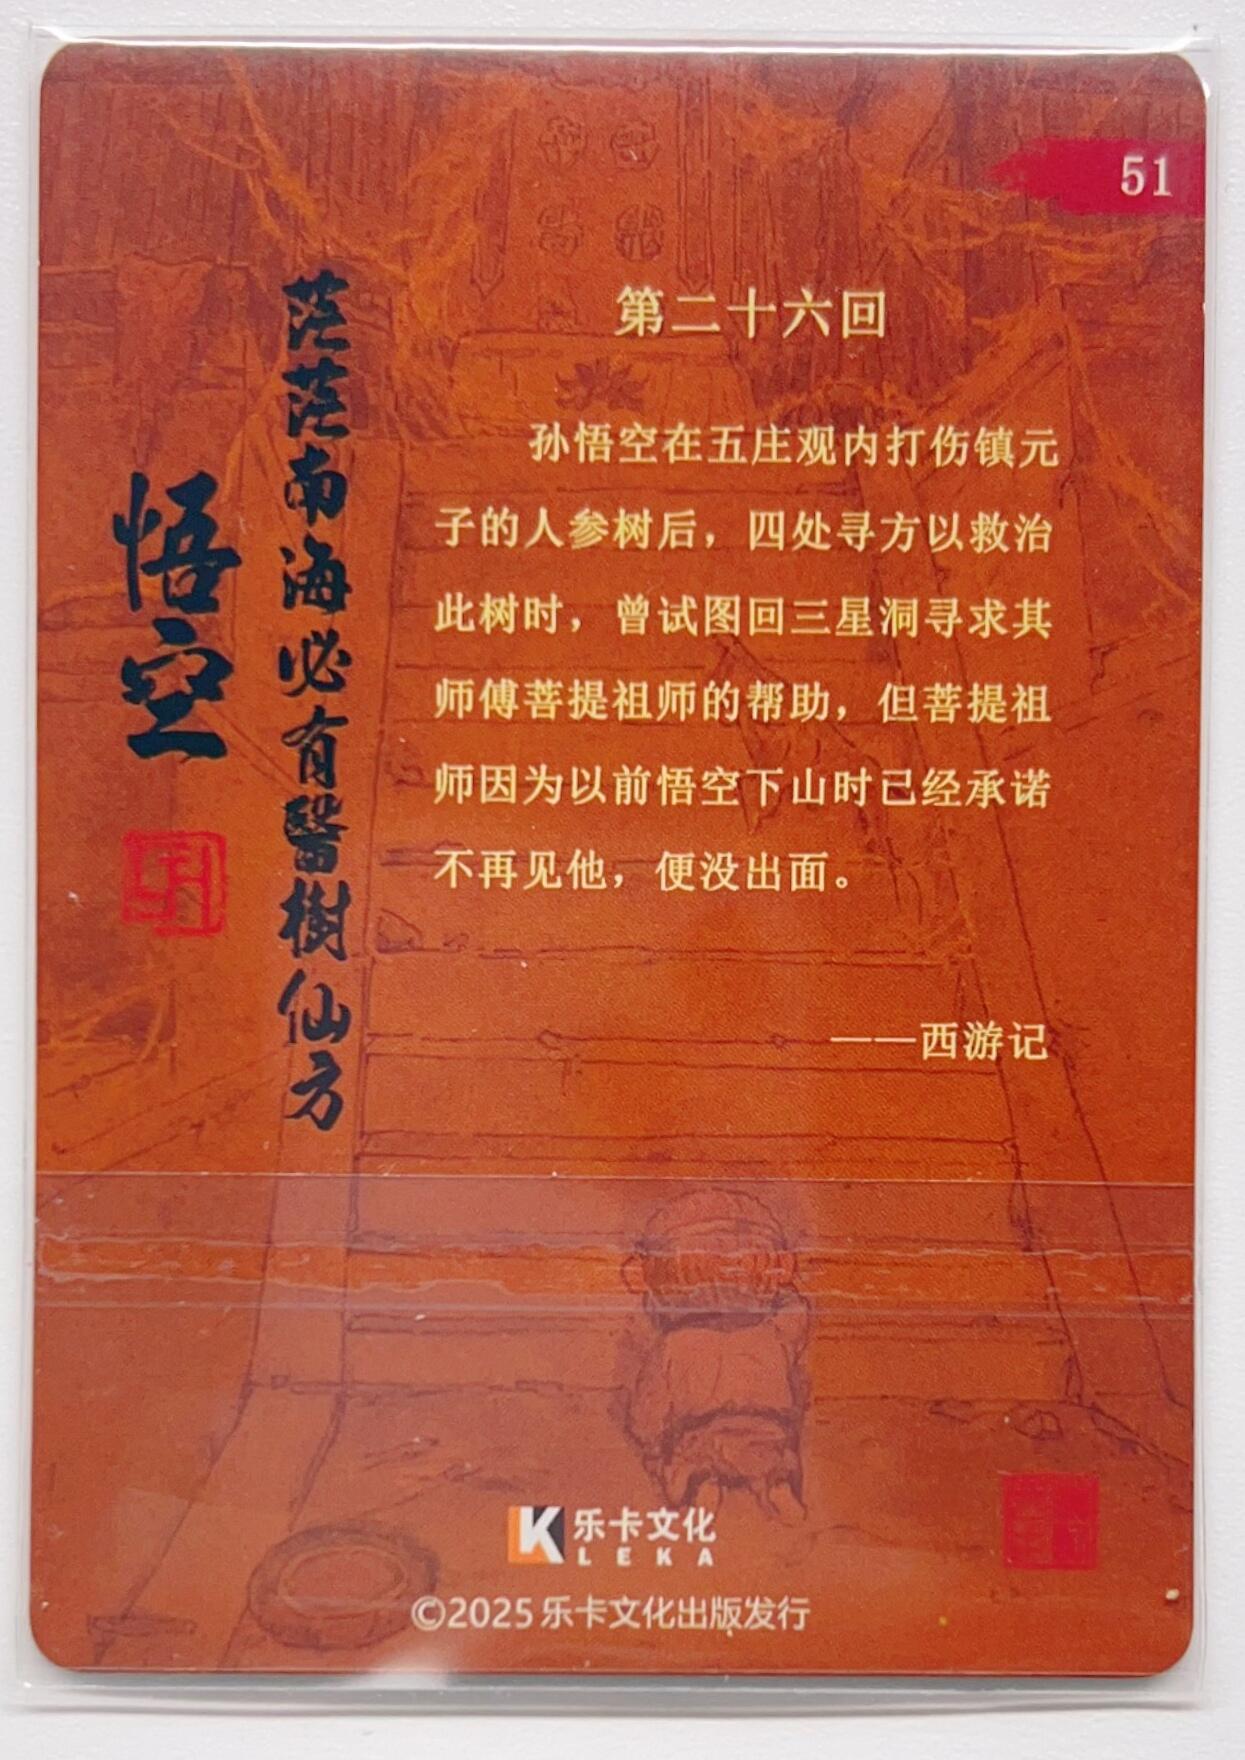 51
茫茫南海必有醫樹仙方
悟空
第二十六回
孙悟空在五庄观内打伤镇元
子的人参树后，四处寻方以救治
此树时，曾试图回三星洞寻求其
师傅菩提祖师的帮助，但菩提祖
师因为以前悟空下山时已经承诺
不再见他，便没出面。
——西游记
LK 乐卡文化
LEKA
©2025乐卡文化出版发行